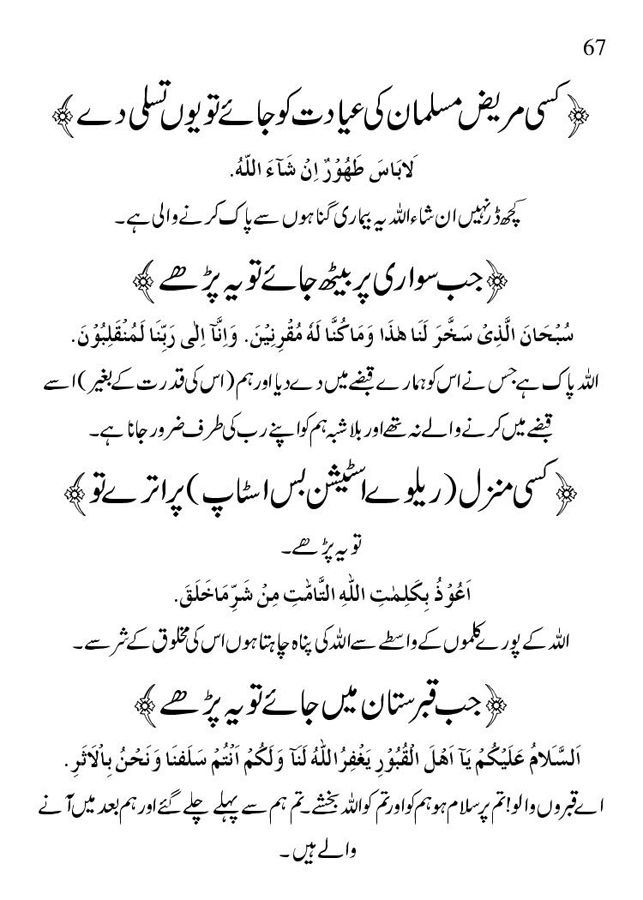 67
﴿کسی مریض مسلمان کی عیادت کو جائے تو یوں تسلی دے﴾
لَابَاسَ طَهُوْرٌ اِنْ شَآءَ اللّٰهُ.
کچھ ڈر نہیں ان شاء اللہ یہ بیماری گناہوں سے پاک کرنے والی ہے۔
﴿جب سواری پر بیٹھ جائے تو یہ پڑھے﴾
سُبْحَانَ الَّذِیْ سَخَّرَ لَنَا هٰذَا وَمَا كُنَّا لَهٗ مُقْرِنِیْنَ. وَاِنَّآ اِلٰی رَبِّنَا لَمُنْقَلِبُوْنَ.
اللہ پاک ہے جس نے اس کو ہمارے قبضے میں دے دیا اور ہم (اس کی قدرت کے بغیر) اسے
قبضے میں کرنے والے نہ تھے اور بلاشبہ ہم کو اپنے رب کی طرف ضرور جانا ہے۔
﴿کسی منزل (ریلوے اسٹیشن بس اسٹاپ) پر اترے تو﴾
تو یہ پڑھے۔
اَعُوْذُ بِكَلِمٰتِ اللّٰهِ التَّامّٰتِ مِنْ شَرِّمَا خَلَقَ.
اللہ کے پورے کلموں کے واسطے سے اللہ کی پناہ چاہتا ہوں اس کی مخلوق کے شر سے۔
﴿جب قبرستان میں جائے تو یہ پڑھے﴾
اَلسَّلَامُ عَلَیْكُمْ یَآ اَهْلَ الْقُبُوْرِ یَغْفِرُ اللّٰهُ لَنَا وَلَكُمْ اَنْتُمْ سَلَفُنَا وَنَحْنُ بِالْاَثَرِ.
اے قبروں والو! تم پر سلام ہو ہم کو اور تم کو اللہ بخشے۔ تم ہم سے پہلے چلے گئے اور ہم بعد میں آنے
والے ہیں۔